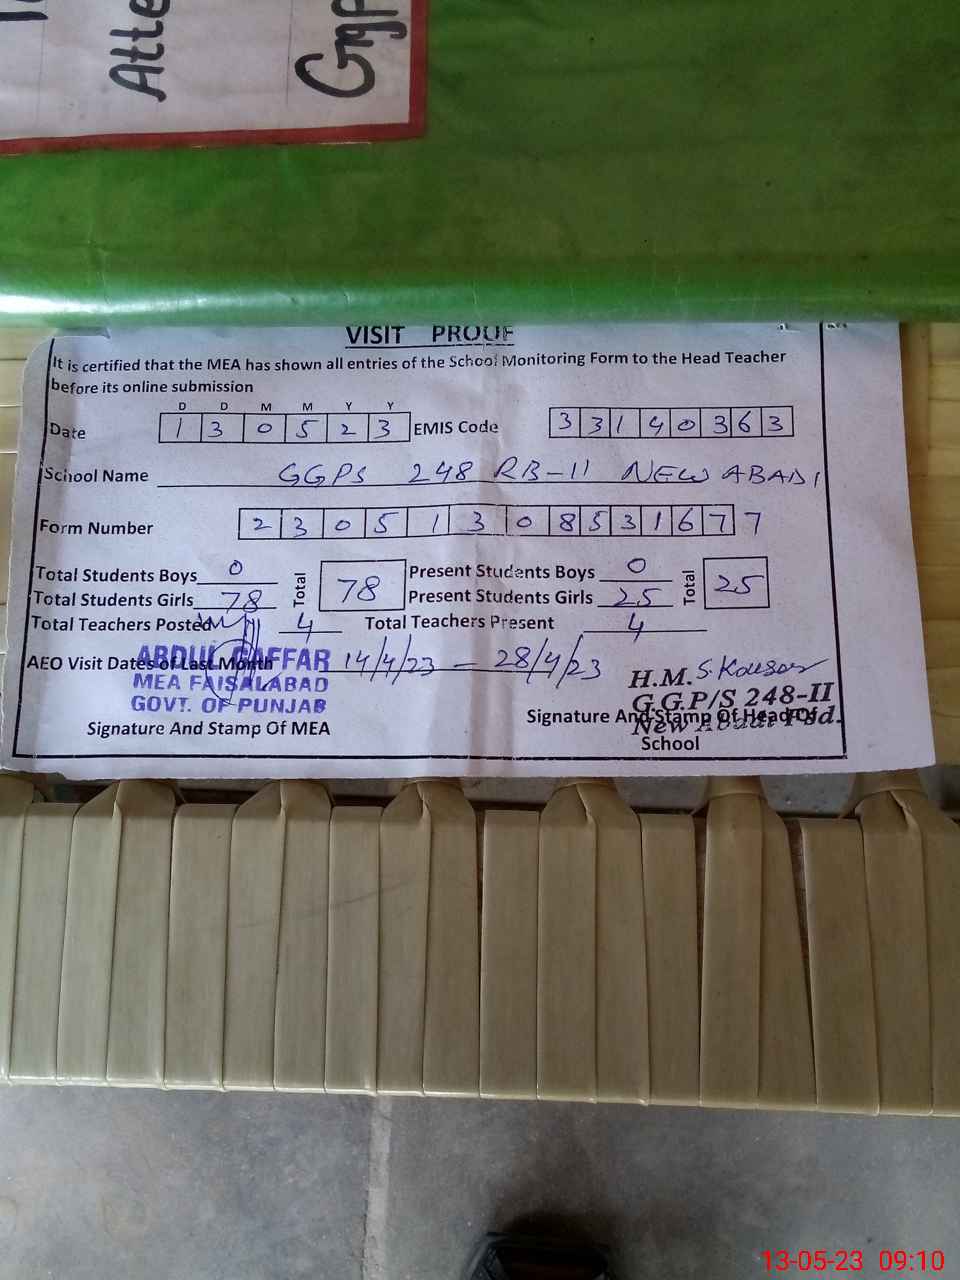 Atte
VISIT PROOF
It is certified that the MEA has shown all entries of the School Monitoring Form to the Head Teacher
before its online submission
D D M M Y Y
Date 1 3 0 5 2 3 EMIS Code 3 3 1 4 0 3 6 3
School Name GGPS 248 RB-II NEW ABADI
Form Number 2 3 0 5 1 3 0 8 5 3 1 6 7 7
Total Students Boys 0 Total 78 Present Students Boys 0 Total 25
Total Students Girls 78 Present Students Girls 25
Total Teachers Posted 4 Total Teachers Present 4
AEO Visit Dates of Last Month 14/4/23 - 28/4/23
ABDUL GAFFAR
MEA FAISALABAD
GOVT. OF PUNJAB
H.M. S. Kousar
G.G.P/S 248-II
New Abadi Fsd.
Signature And Stamp Of MEA
Signature And Stamp Of Head Of
School
13-05-23 09:10